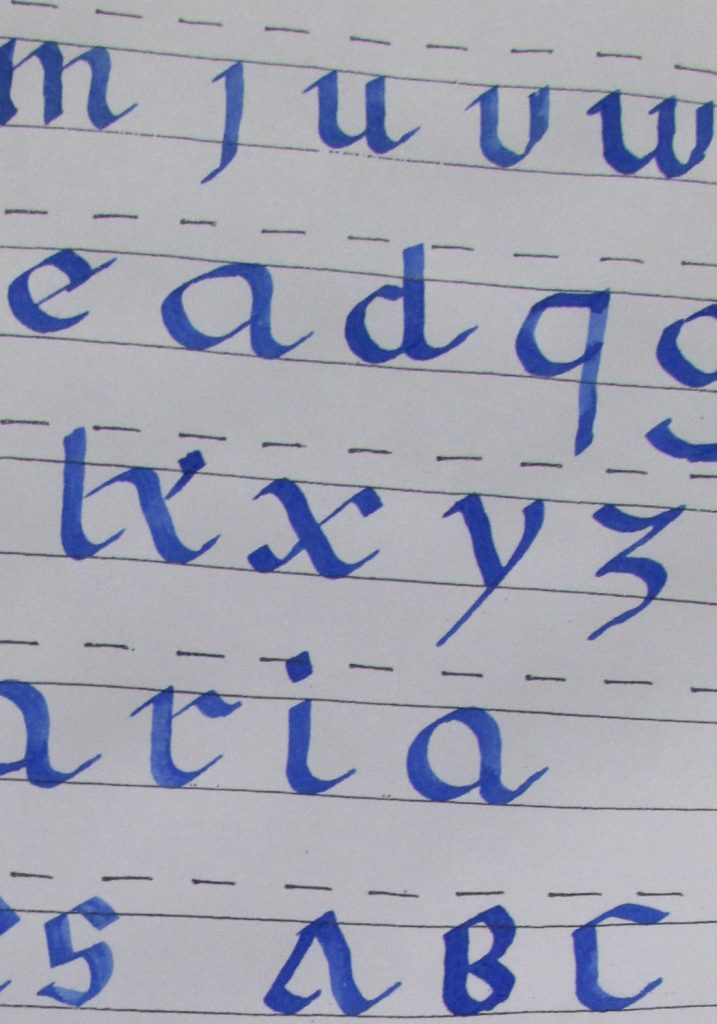 m j u v w
e a d q g
k x y z
aria
s A B C